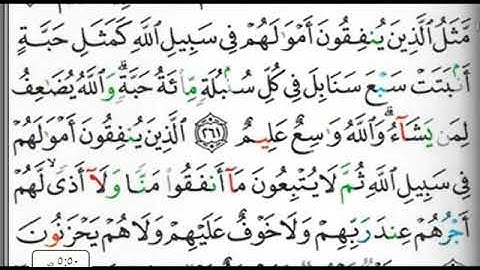 مَّثَلُ ٱلَّذِينَ يُنفِقُونَ أَمْوَٰلَهُمْ فِى سَبِيلِ ٱللَّهِ كَمَثَلِ حَبَّةٍ
أَنۢبَتَتْ سَبْعَ سَنَابِلَ فِى كُلِّ سُنۢبُلَةٍ مِّا۟ئَةُ حَبَّةٍ ۗ وَٱللَّهُ يُضَٰعِفُ
لِمَن يَشَآءُ ۗ وَٱللَّهُ وَٰسِعٌ عَلِيمٌ ٢٦١ ٱلَّذِينَ يُنفِقُونَ أَمْوَٰلَهُمْ
فِى سَبِيلِ ٱللَّهِ ثُمَّ لَا يُتْبِعُونَ مَآ أَنفَقُوا۟ مَنًّا وَلَآ أَذًى ۙ لَّهُمْ
أَجْرُهُمْ عِندَ رَبِّهِمْ وَلَا خَوْفٌ عَلَيْهِمْ وَلَا هُمْ يَحْزَنُونَ